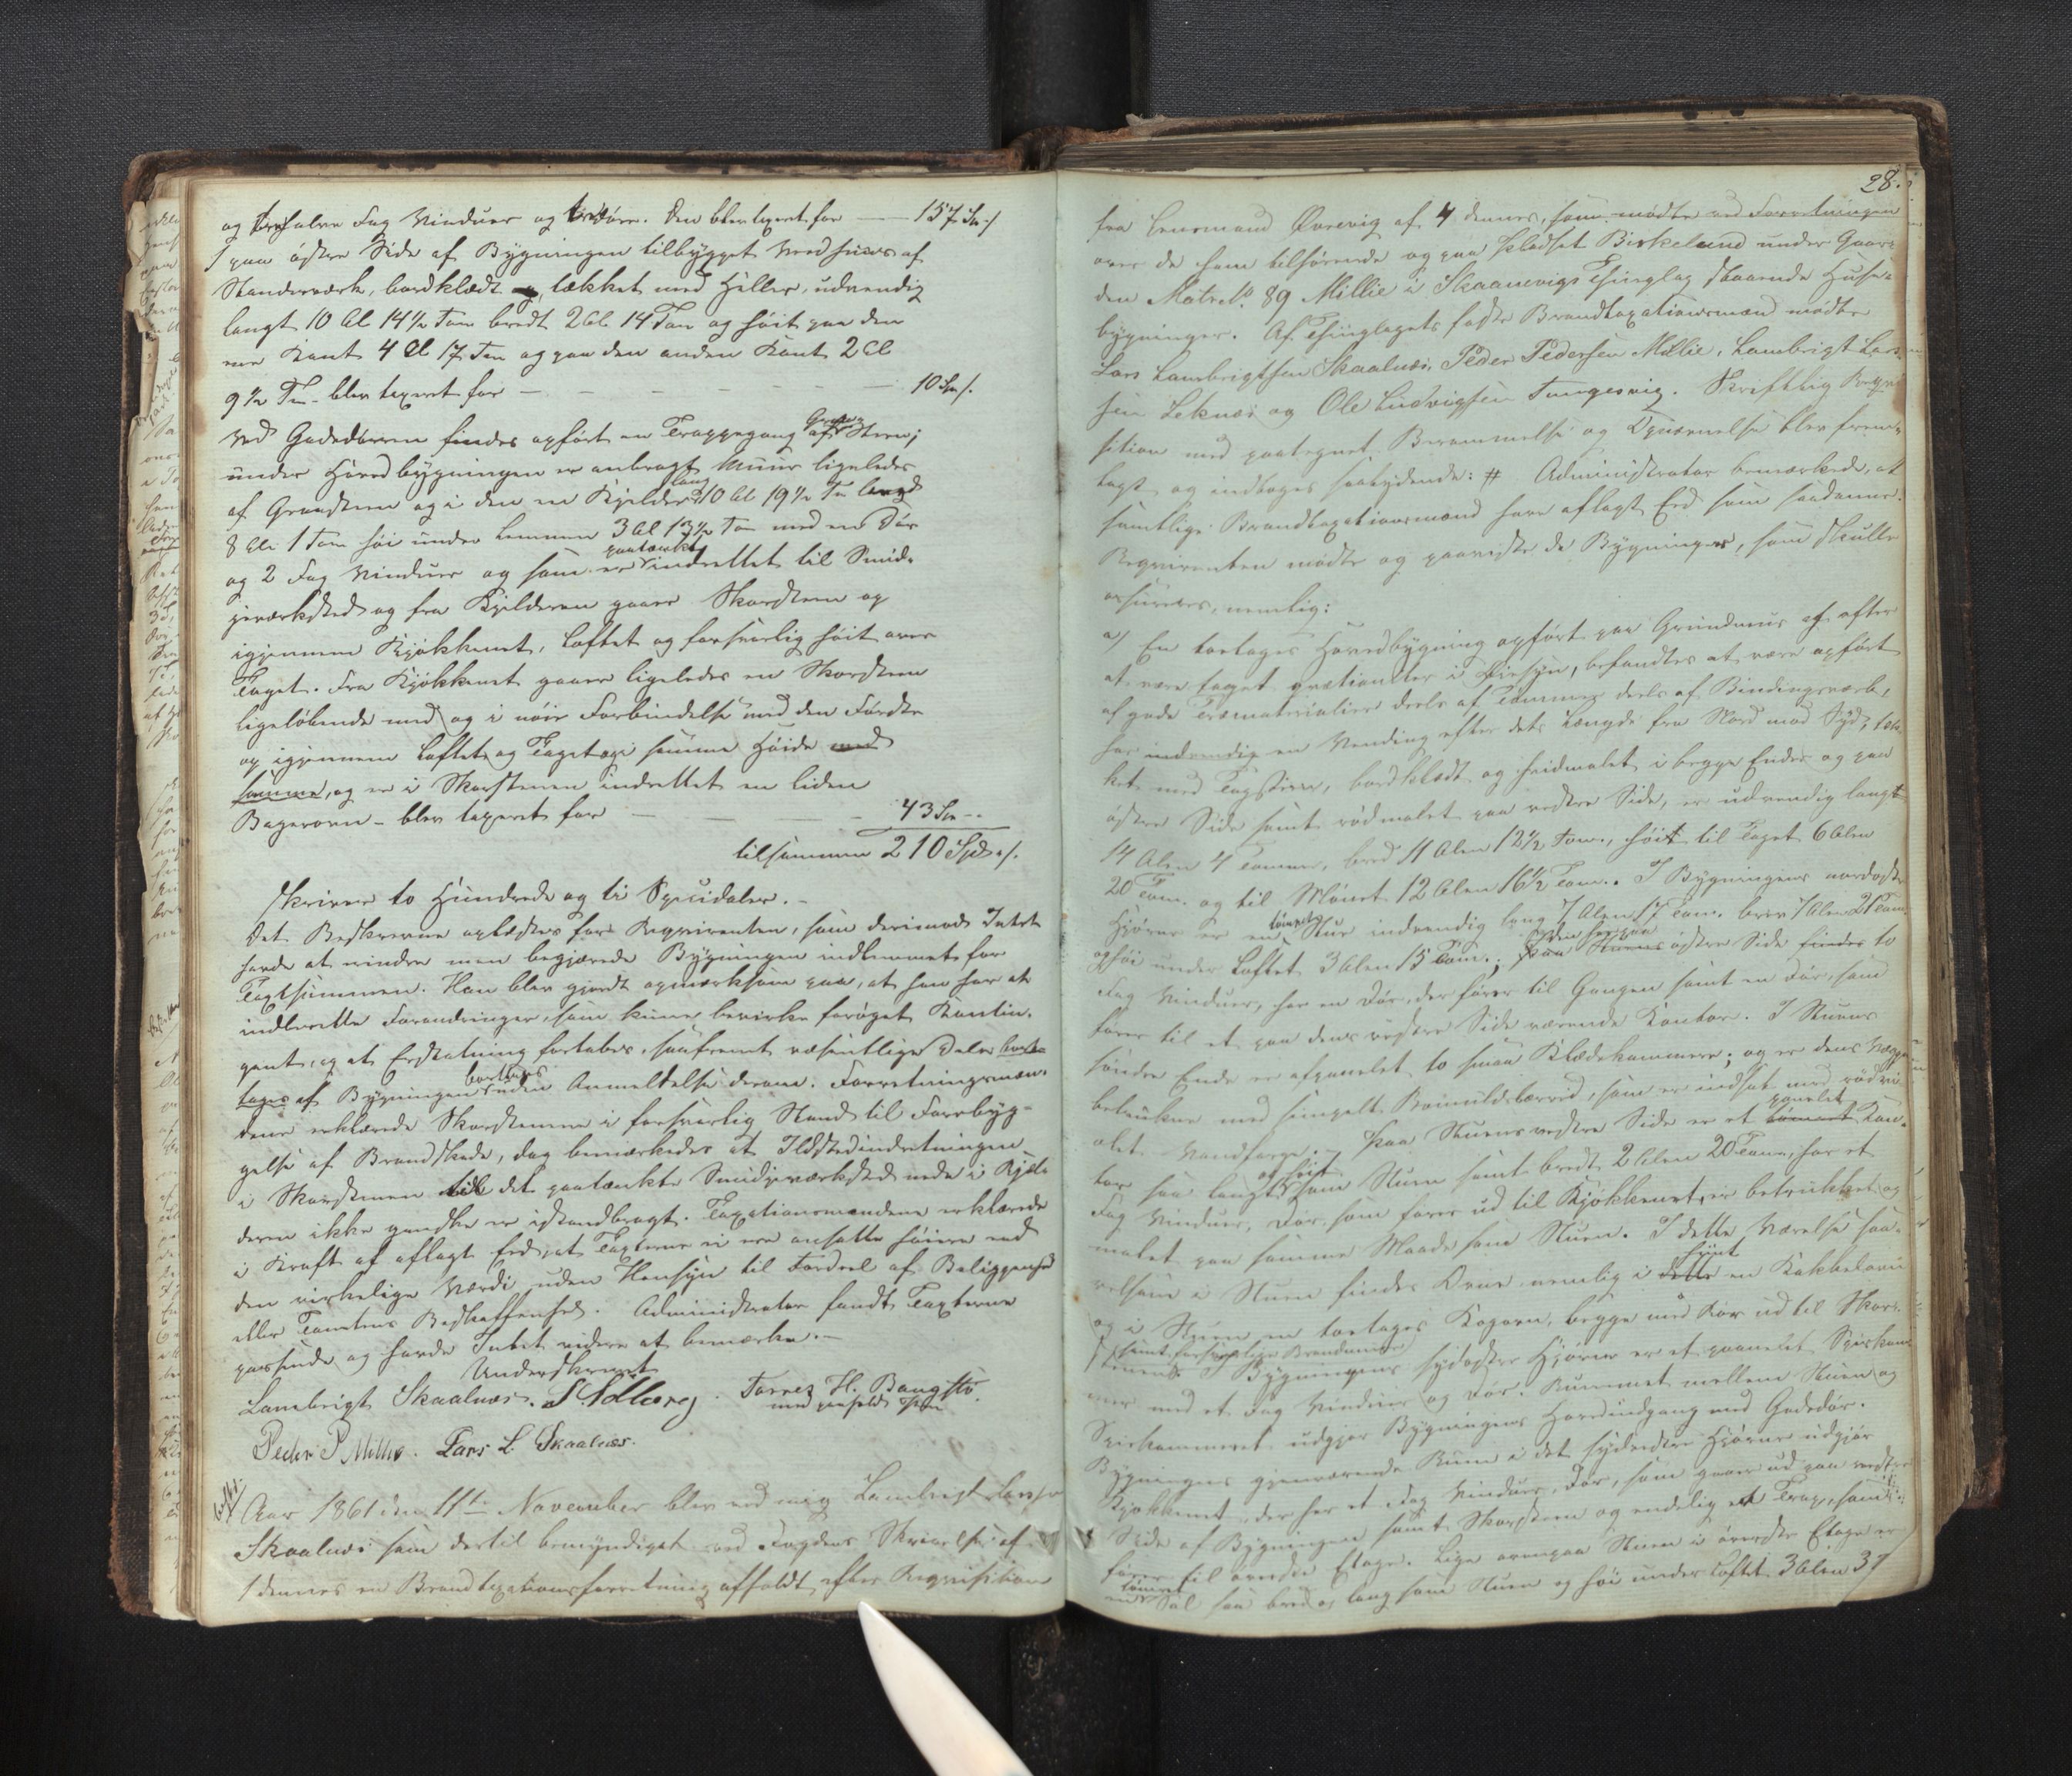 og tvehalve Fag Vinduer og tredøre. Den blev taxeret for — 157 Sp./
paa østre Side af Bygningen tilbygget Vedhuus af
Standerværk, bordklædt, lækket med Heller, udvendig
langt 10 Al 14½ Tom bredt 2 Al 14 Tom og høit paa den
ene Kant 4 Al 17 Tom og paa den anden Kant 2 Al
9½ Tm - blev taxeret for — — — — — 10 Spd.
Ved Gadedøren findes opført en Trappegang af Graasteen;
under Hovedbygningen er anbragt Muur ligeledes
af Graasteen og i den en Kjelder lang 10 Al 19½ Tm bred
8 Al 1 Tom høi under Lemmen 3 Al 13½ Tom med en Dør
og 2 Fag Vinduer og som er paatænkt indrettet til Smid-
jeværksted og fra Kjelderen gaaer Skorsteen op
igjennem Kjøkkenet, Loftet og forsvarlig høit over
Taget. Fra Kjøkkenet gaaer ligeledes en Skorsteen
ligeløbende med og i nøie Forbindelse med den Første
op igjennem Loftet og Taget og i samme Høide med
samme, og er i Skorstenen indrettet en liden
Bagerovn - blev taxeret for — — — 43 Sp --
tilsammen 210 Spd./.
skriver to Hundrede og ti Speciedaler. -
Det Beskrevne oplæstes for Reqvirenten, som derimod Intet
havde at erindre men begjærede Bygningen indlemmet for
Taxtsummen. Han blev gjordt opmærksom paa, at han har at
indberette Forandringer, som kunne bevirke forøget Kontin-
gent, og at Erstatning fortabes, saafremt væsentlige Dele bort-
tages af Bygningen borttages uden Anmeldelse derom. Forretningsmæn-
dene erklærede Skorstenene i forsvarlig Stand til Forebyg-
gelse af Brandskade, dog bemærkedes at Ildstedindretningen
i Skorstenen til det paatænkte Smidjeværksted nede i Kjel-
deren ikke gandske er istandbragt. Taxationsmændene erklærede
i Kraft af aflagt Eed, at Taxterne ei ere ansatte høiere end
den virkelige Værdi uden Hensyn til Fordeel af Beliggenhed
eller Tomtens Beskaffenhed. Administrator fandt Taxterne
passende og havde Intet videre at bemærke. -
Underskrevet
Lambrigt Skaalnæs. Torres H. Bangstø
med paaholdt Pen
Peder P Millie. Lars L. Skaalnæs.
Aar 1861 den 11te November blev ved mig Lambrigt Larsen
Skaalnæs som dertil bemyndiget ved Fogdens Skrivelse af
1 dennes en Brandtaxationsforretning afholdt efter Reqvisition
28.
fra Lensmand Øvrevig af 4 dennes, som mødte ved Forretningen
over de ham tilhørende og paa Pladset Birkeland under Gaar-
den Matr. No 89 Millie i Skaanevigs Thinglag staaende Huse-
bygninger. Af Thinglagets faste Brandtaxationsmænd mødte
Lars Lambrigtsen Skaalnæs, Peder Pedersen Millie, Lambrigt Lar-
sen Leknæs og Ole Ludvigsen Tungesvig. Skriftlig Reqvi-
sition med paategnet Berammelse og Opnævnelse blev frem-
lagt og indtages saalydende: # Administrator bemærkede, at
samtlige Brandtaxationsmænd have aflagt Eed som saadanne.
Reqvirenten mødte og paaviste de Bygninger, som skulle
assureres, nemlig:
a) En toetages Hovedbygning opført paa Grundmuur af efter
at være taget grætiondter i Øiesyn, befandtes at være opført
af gode Træmaterialier deels af Tømmer deels af Bindingsværk,
har indvendig en Vending efter dets Længde fra Nord mod Syd, tæk-
ket med Tagsteen, bordklædt og hvidmalet i begge Ender og paa
østre Side samt rødmalet paa vestre Side, er udvendig langt
14 Alen 4 Tommer, bred 11 Alen 12½ Tom., høit til Taget 6 Alen
20 Tom. og til Mønet 12 Alen 16½ Tom.. I Bygningens nordøstre
Hjørne er en tømret Stue indvendig lang 7 Alen 17 Tom. bred 7 Alen 21 Tom.
og høi under Loftet 3 Alen 15 Tom.; den har paa østre Side to
Fag Vinduer, har en Dør, der fører til Gangen samt en Dør, som
fører til et paa dens vestre Side værende Kontor. I Stuens
søndre Ende er afpanelet to smaa Klædekammere; og er dens Vægge
betrukne med simpelt Bomuldslærred, som er indsat med rød vi-
olet Vandfarge. Paa Stuens vestre Side er et panelet Kon-
tor saa langt og høit som Stuen samt bredt 2 Alen 20 Tom., har et
Fag Vinduer, Dør som fører ud til Kjøkkenet, er betrukket og
malet paa samme Maade som Stuen. I dette Værelse saa-
velsom i Stuen findes Ovne nemlig i hiint en Kakkelovn
og i Stuen en toetages Kogovn, begge med Rør ud til Skor-
stenen samt forsvarlige Brandmure. I Bygningens sydøstre Hjørne er et panelet Spiskam-
mer med et Fag Vinduer og Dør. Rummet mellem Stuen og
Spiskammeret udgjør Bygningens Hovedindgang med Gadedør.
Bygningens gjenværende Rum i det sydvestre Hjørne udgjør
Kjøkkenet, der har et Fag Vinduer, Dør, som gaaer ud paa vestre
Side af Bygningen samt Skorsteen og endelig en Trap, som
fører til øverste Etage. Lige ovenpaa Stuen i øverste Etage er
en tømret Sal saa bred og lang som Stuen og høi under Loftet 3 Alen 3½